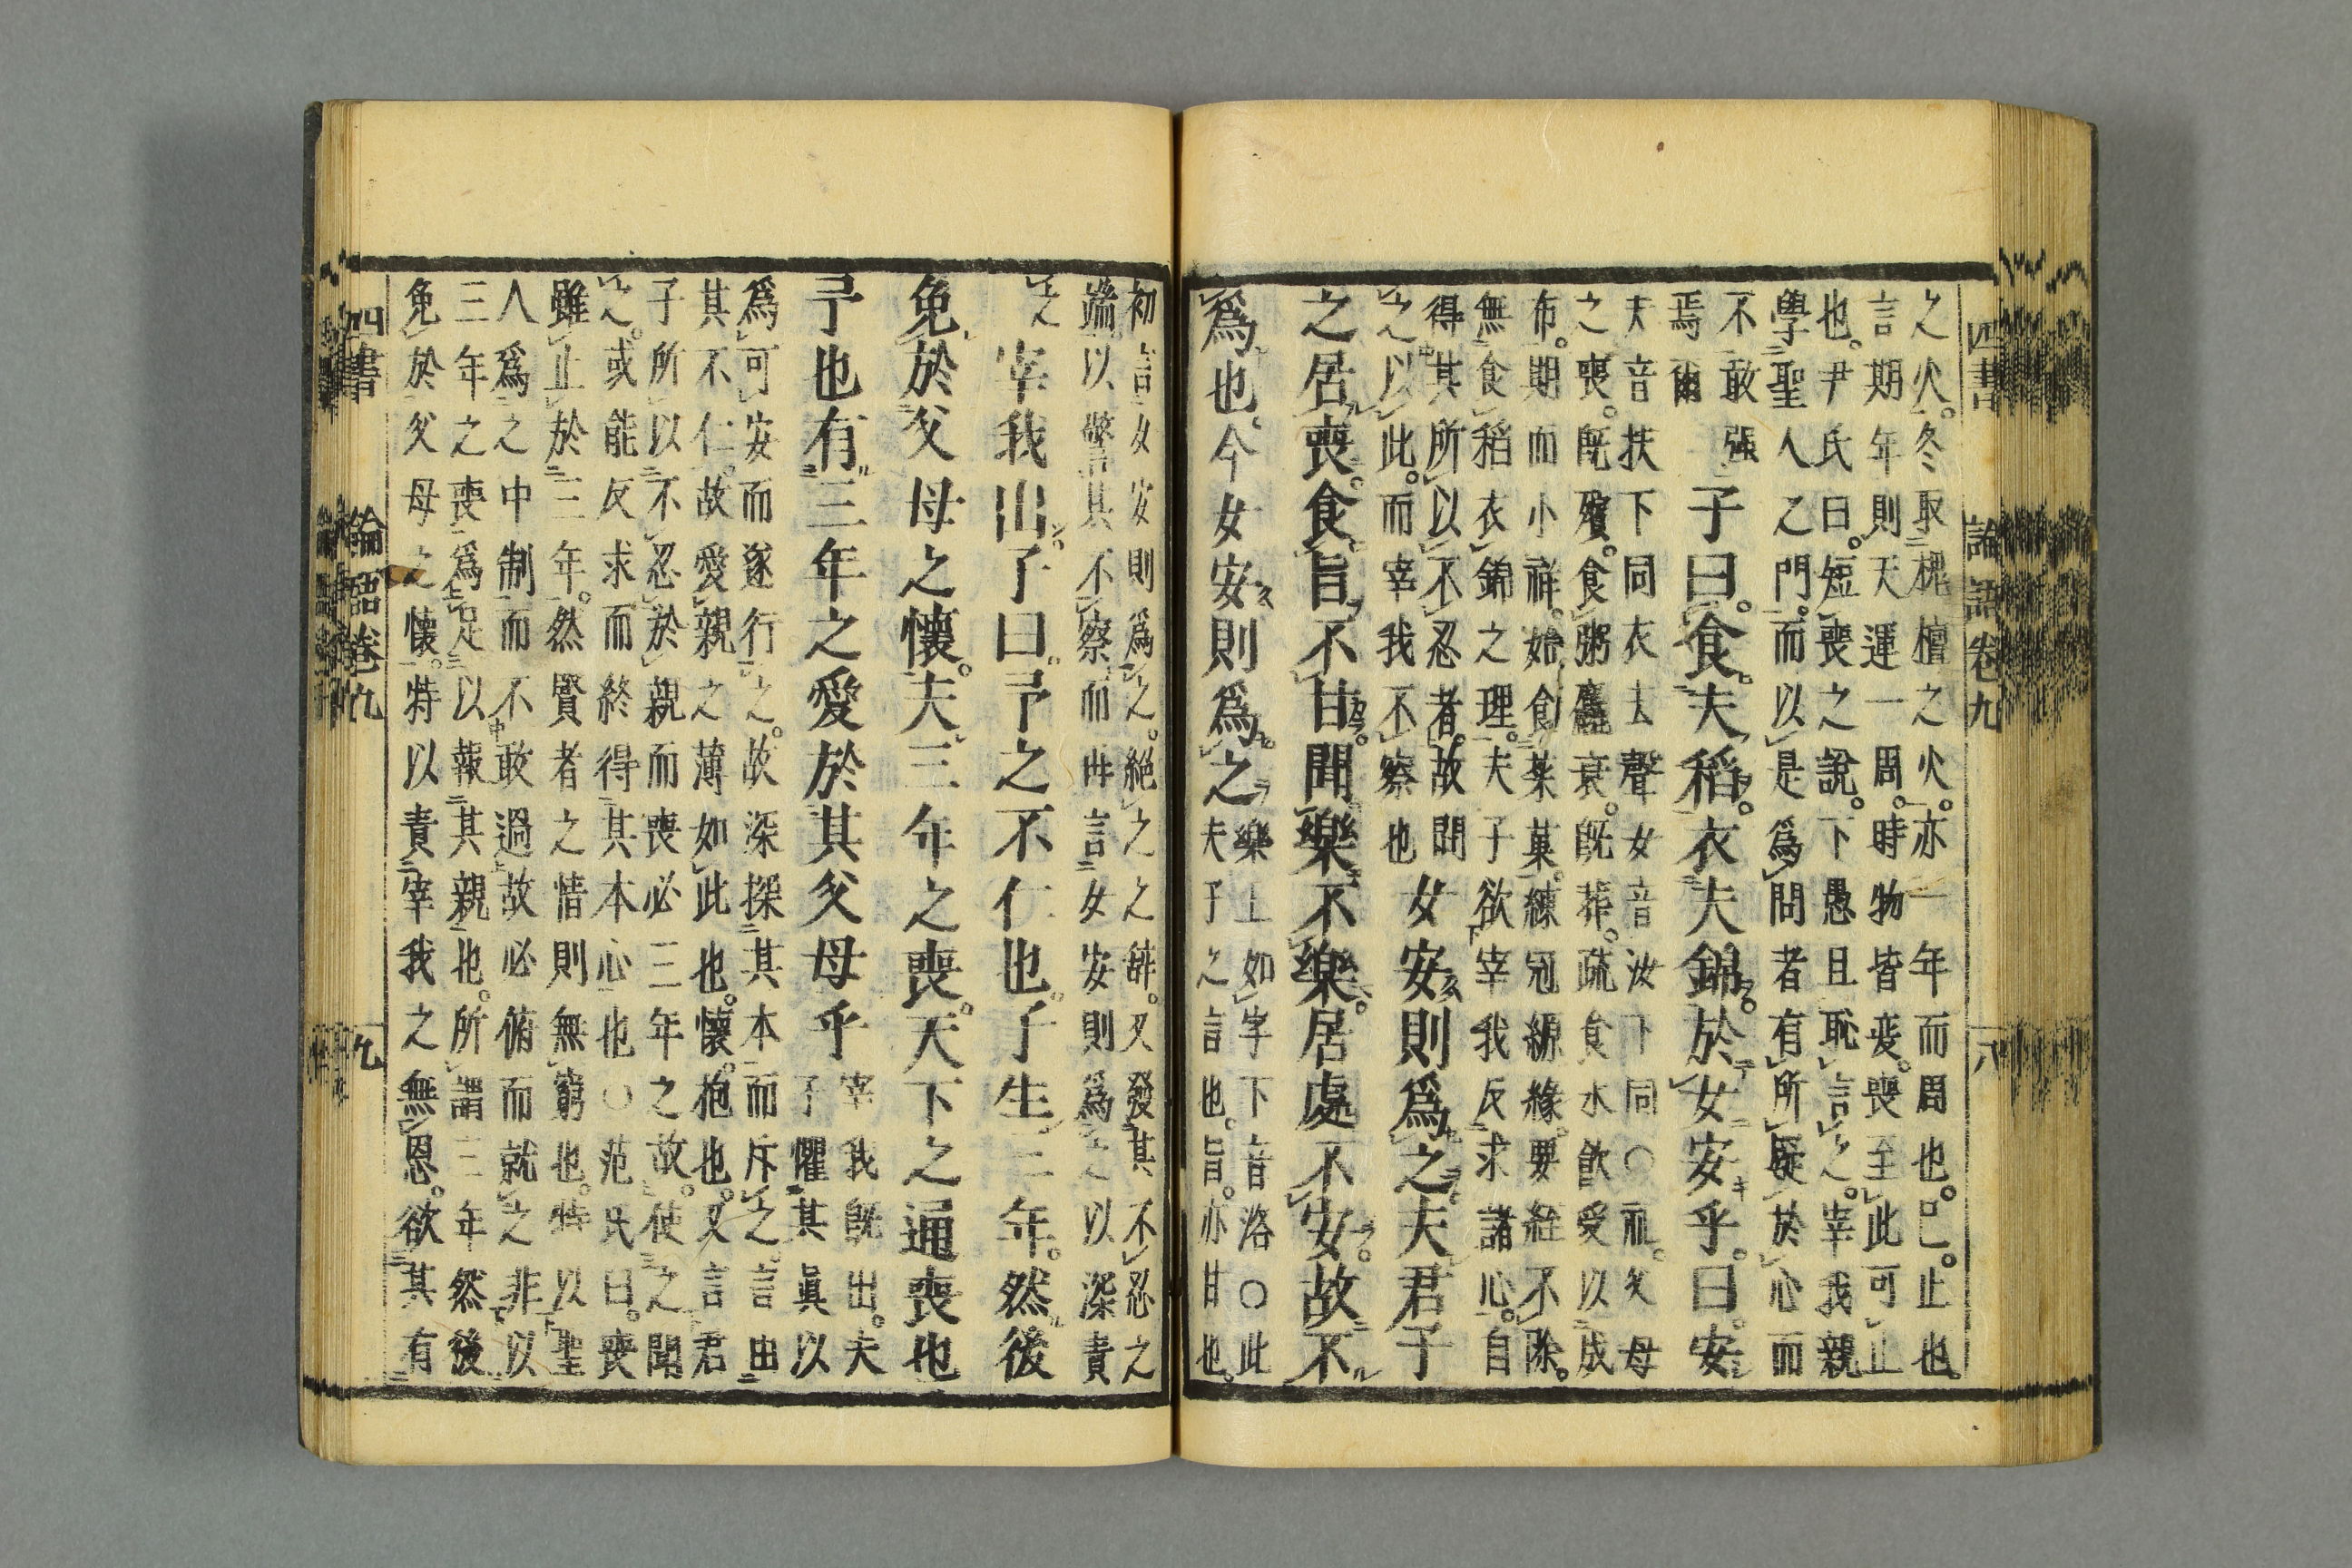 四書 論語卷九 八
之火冬取槐檀之火亦一年而周也已止也
言期年則天運一周時物皆變喪至此可止
也尹氏曰短喪之說下愚且恥言之宰我親
學聖人之門而以是爲問者有所疑於心而
不敢强
焉爾
子曰食夫稻衣夫錦於女安乎曰安
夫音扶下同衣去聲女音汝下同○禮父母
之喪既殯食粥麤衰既葬疏食水飮受以成
布期而小祥始食菜菓練冠縓緣要絰不除
無食稻衣錦之理夫子欲宰我反求諸心自
得其所以不忍者故問
之以此而宰我不察也
女安則爲之夫君子
之居喪食旨不甘聞樂不樂居處不安故不
爲也今女安則爲之
樂上如字下音洛○此
夫子之言也旨亦甘也
初言女安則爲之絕之之辭又發其不忍之
端以警其不察而再言女安則爲之以深責
之
宰我出子曰予之不仁也子生三年然後
免於父母之懷夫三年之喪天下之通喪也
予也有三年之愛於其父母乎
宰我既出夫
子懼其眞以
爲可安而遂行之故深探其本而斥之言由
其不仁故愛親之薄如此也懷抱也又言君
子所以不忍於親而喪必三年之故使之聞
之或能反求而終得其本心也○范氏曰喪
雖止於三年然賢者之情則無窮也特以聖
人爲之中制而不敢過故必俯而就之非以
三年之喪爲足以報其親也所謂三年然後
免於父母之懷特以責宰我之無恩欲其有
四書 論語卷九 九